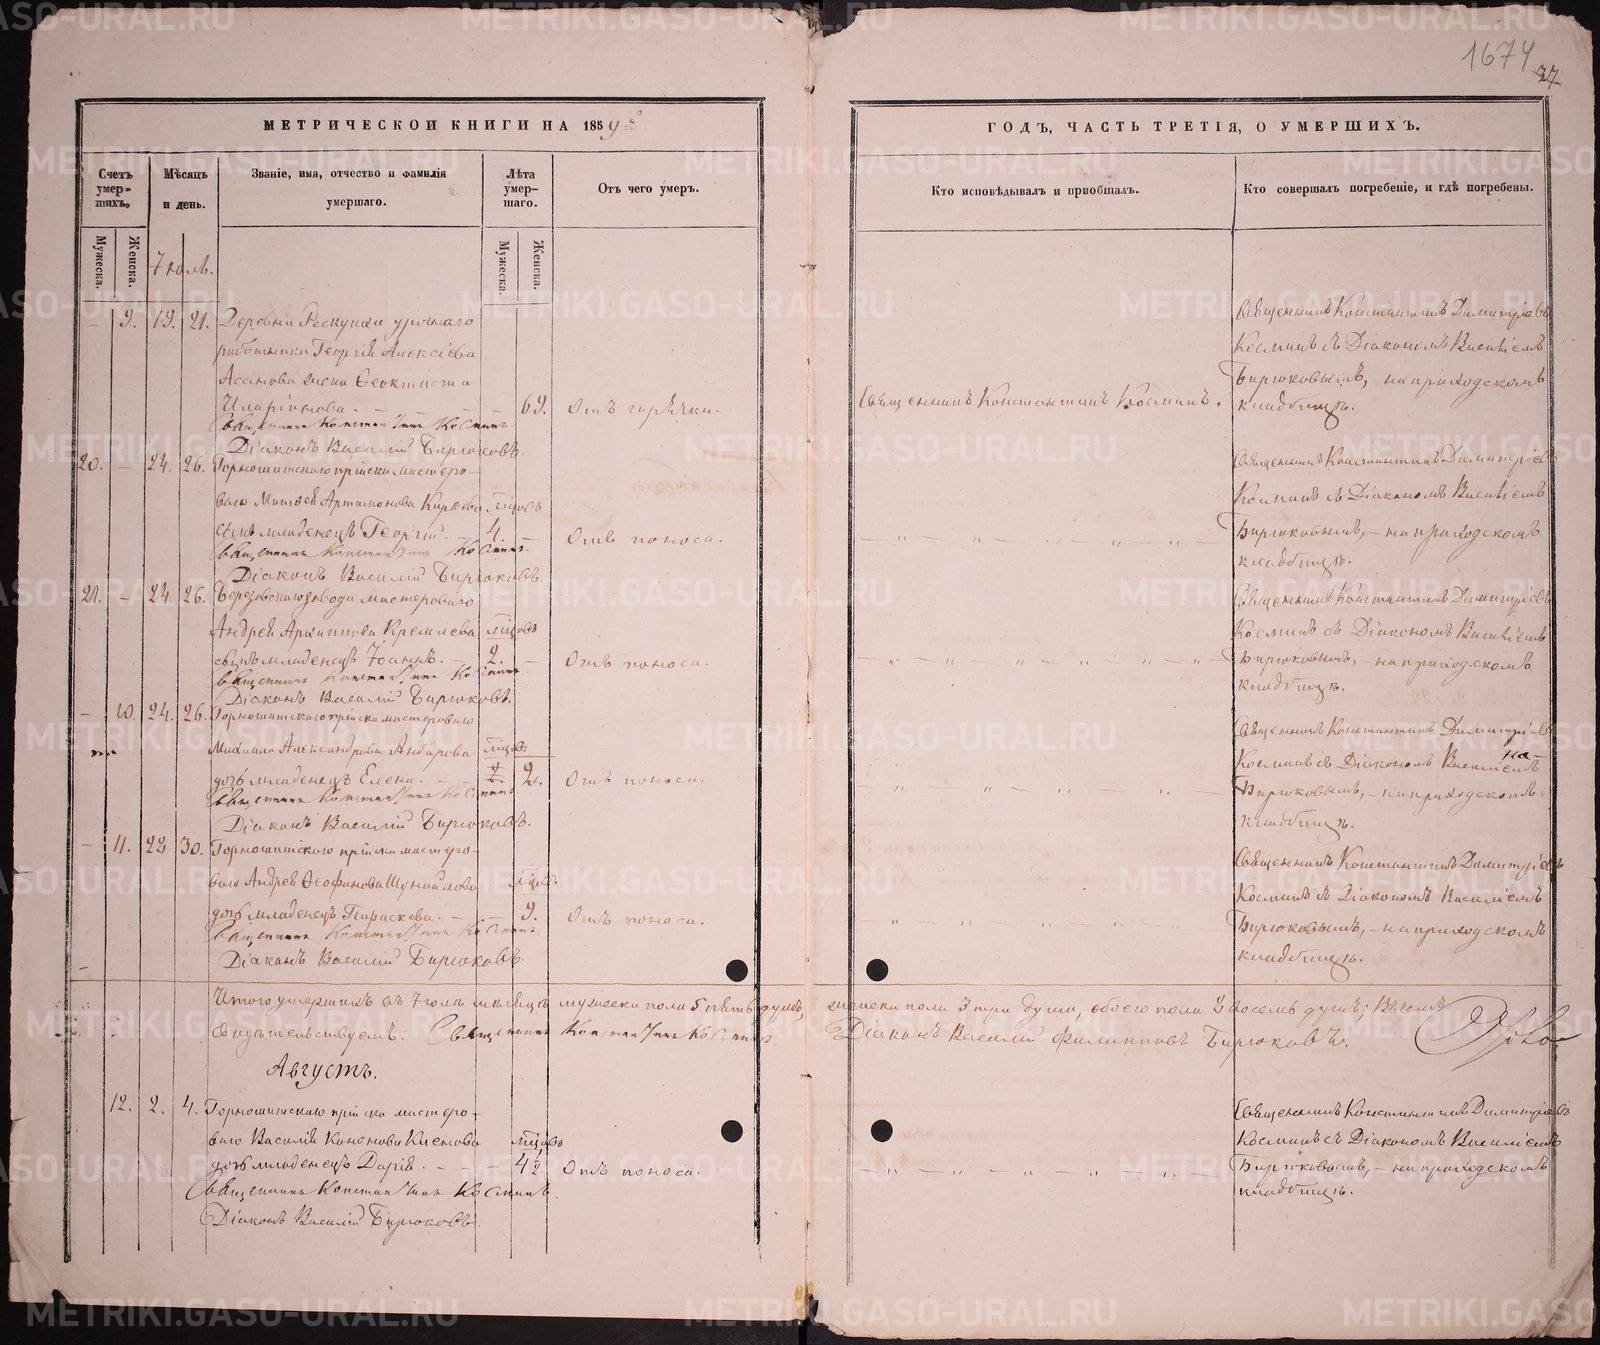 1674
37
МЕТРИЧЕСКОЙ КНИГИ НА 1859й
ГОДЪ, ЧАСТЬ ТРЕТІЯ, О УМЕРШИХЪ.
Счетъ умер-шихъ.
Мѣсяцъ и день.
Званіе, имя, отчество и фамилія умершаго.
Лѣта умер-шаго.
Отъ чего умеръ.
Кто исповѣдывалъ и пріобщалъ.
Кто совершалъ погребеніе, и гдѣ погребены.
Мужеска.
Женска.
Мужеска.
Женска.
Іюль.
9. 19. 21. Деревни
работника Георгія Алексіева
жена Ѳеоктиста
Иларіонова. 69. Отъ горячки.
Священникъ Константинъ Косминъ.
Діаконъ Василій Бирюковъ.
Священникъ Константинъ Косминъ.
Священникъ Константинъ Димитріевъ
Косминъ съ Діакономъ Василіемъ
Бирюковымъ, - на приходскомъ
кладбищѣ.
20. - 24. 26. Горнощитскаго пріиска мастеро-
ваго Артамонова мѣсяцовъ
сынъ младенецъ Георгій. 4. Отъ поноса.
Священникъ Константинъ Косминъ.
Діаконъ Василій Бирюковъ.
Священникъ Константинъ Димитріевъ
Косминъ съ Діакономъ Василіемъ
Бирюковымъ, - на приходскомъ
кладбищѣ.
21. - 24. 26. Березовскаго завода мастероваго
Андрея Архиппова Кремлева мѣсяцовъ
сынъ младенецъ Іоаннъ. 2. Отъ поноса.
Священникъ Константинъ Косминъ
Діаконъ Василій Бирюковъ.
Священникъ Константинъ Димитріевъ
Косминъ съ Діакономъ Василіемъ
Бирюковымъ, - на приходскомъ
кладбищѣ.
- 10. 24. 26. Горнощитскаго пріиска мастероваго
Михаила Александрова мѣсяцовъ
дочь младенецъ Елена. 2. Отъ поноса.
Священникъ Константинъ Косминъ
Діаконъ Василій Бирюковъ.
Священникъ Константинъ Димитріевъ
Косминъ съ Діакономъ Василіемъ
Бирюковымъ, - на приходскомъ
кладбищѣ.
- 11. 28 30. Горнощитскаго пріиска мастеро-
ваго Андрея Ѳеофанова мѣсяцовъ
дочь младенецъ Параскева. 9. Отъ поноса.
Священникъ Константинъ Косминъ.
Діаконъ Василій Бирюковъ.
Священникъ Константинъ Димитріевъ
Косминъ съ Діакономъ Василіемъ
Бирюковымъ, - на приходскомъ
кладбищѣ.
Итого умершихъ въ Іюлѣ мѣсяцѣ мужеска пола 5 пять душъ, женска пола 3 три души, обоего пола 8 восемь душъ; въ чемъ
свидѣтельствуемъ: Священникъ Константинъ Косминъ. Діаконъ Василій Филипповъ Бирюковъ.
Августъ.
12. 2. 4. Горнощитскаго пріиска мастеро-
ваго Василія мѣсяцовъ
дочь младенецъ Дарія. 4½. Отъ поноса.
Священникъ Константинъ Косминъ.
Діаконъ Василій Бирюковъ.
Священникъ Константинъ Димитріевъ
Косминъ съ Діакономъ Василіемъ
Бирюковымъ, - на приходскомъ
кладбищѣ.
METRIKI.GASO-URAL.RU